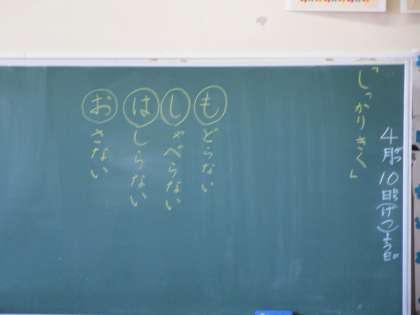 4月10日(げつ)よう日
「しっかりきく」
もどらない
しゃべらない
はしらない
おさない